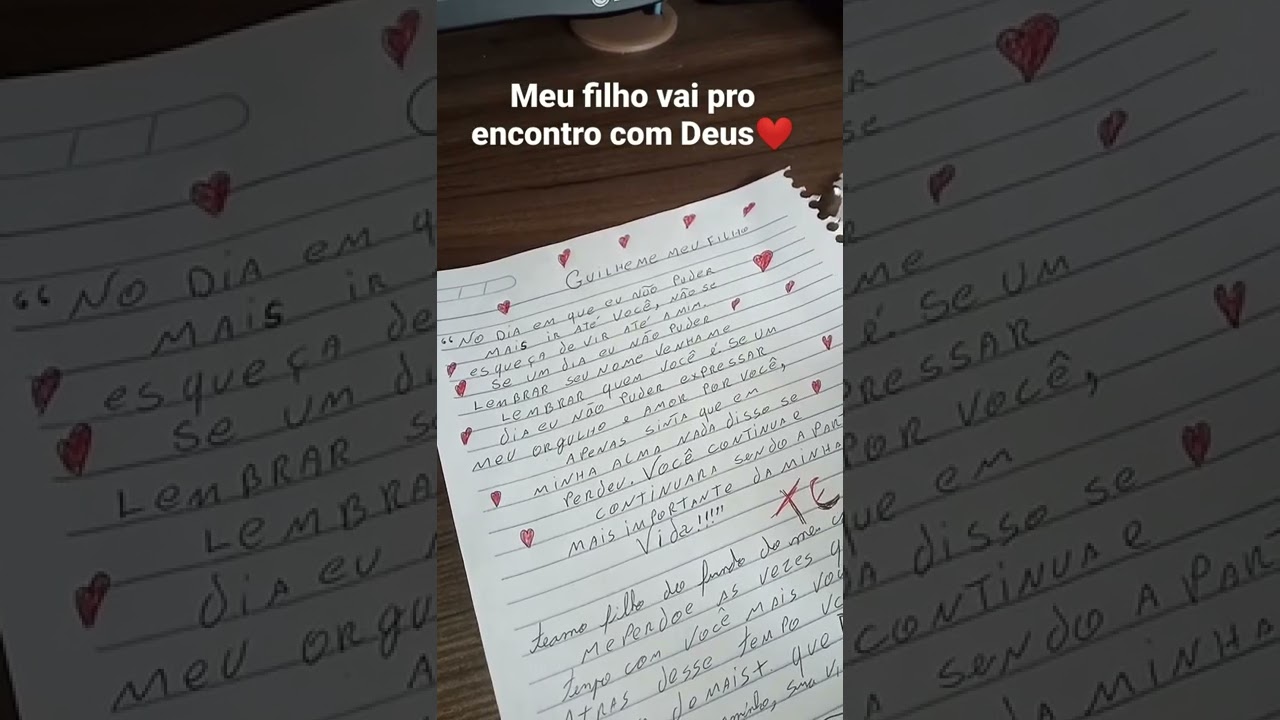 Meu filho vai pro
encontro com Deus❤️
GUILHEME MEU FILHO
"NO DIA EM QUE EU NÃO PUDER
MAIS IR ATÉ VOCÊ, NÃO SE
ESQUEÇA DE VIR ATÉ A MIM.
SE UM DIA EU NÃO PUDER
LEMBRAR SEU NOME VENHA ME
LEMBRAR QUEM VOCÊ É. SE UM
DIA EU NÃO PUDER EXPRESSAR
MEU ORGULHO E AMOR POR VOCÊ,
APENAS SINTA QUE EM
MINHA ALMA NADA DISSO SE
PERDEU. VOCÊ CONTINUA E
CONTINUARA SENDO A PART
MAIS IMPORTANTE DA MINHA
Vida!!!!!
teamo filho do fundo do meu
ME PERDOE AS VEZES
tempo com VOCÊ MAIS VOU
ATRAS DESSE TEMPO
DEMAIS+. que